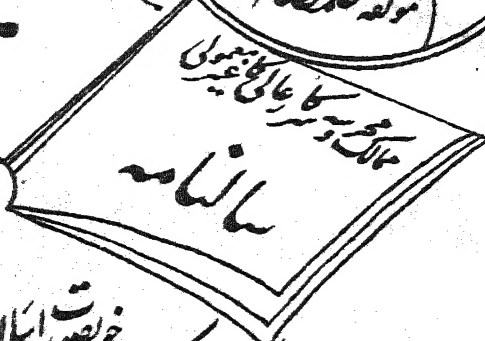 مولفہ
ممالک محروسہ سرکار عالی کا غیر معمولی
سالنامہ
خوبصورت